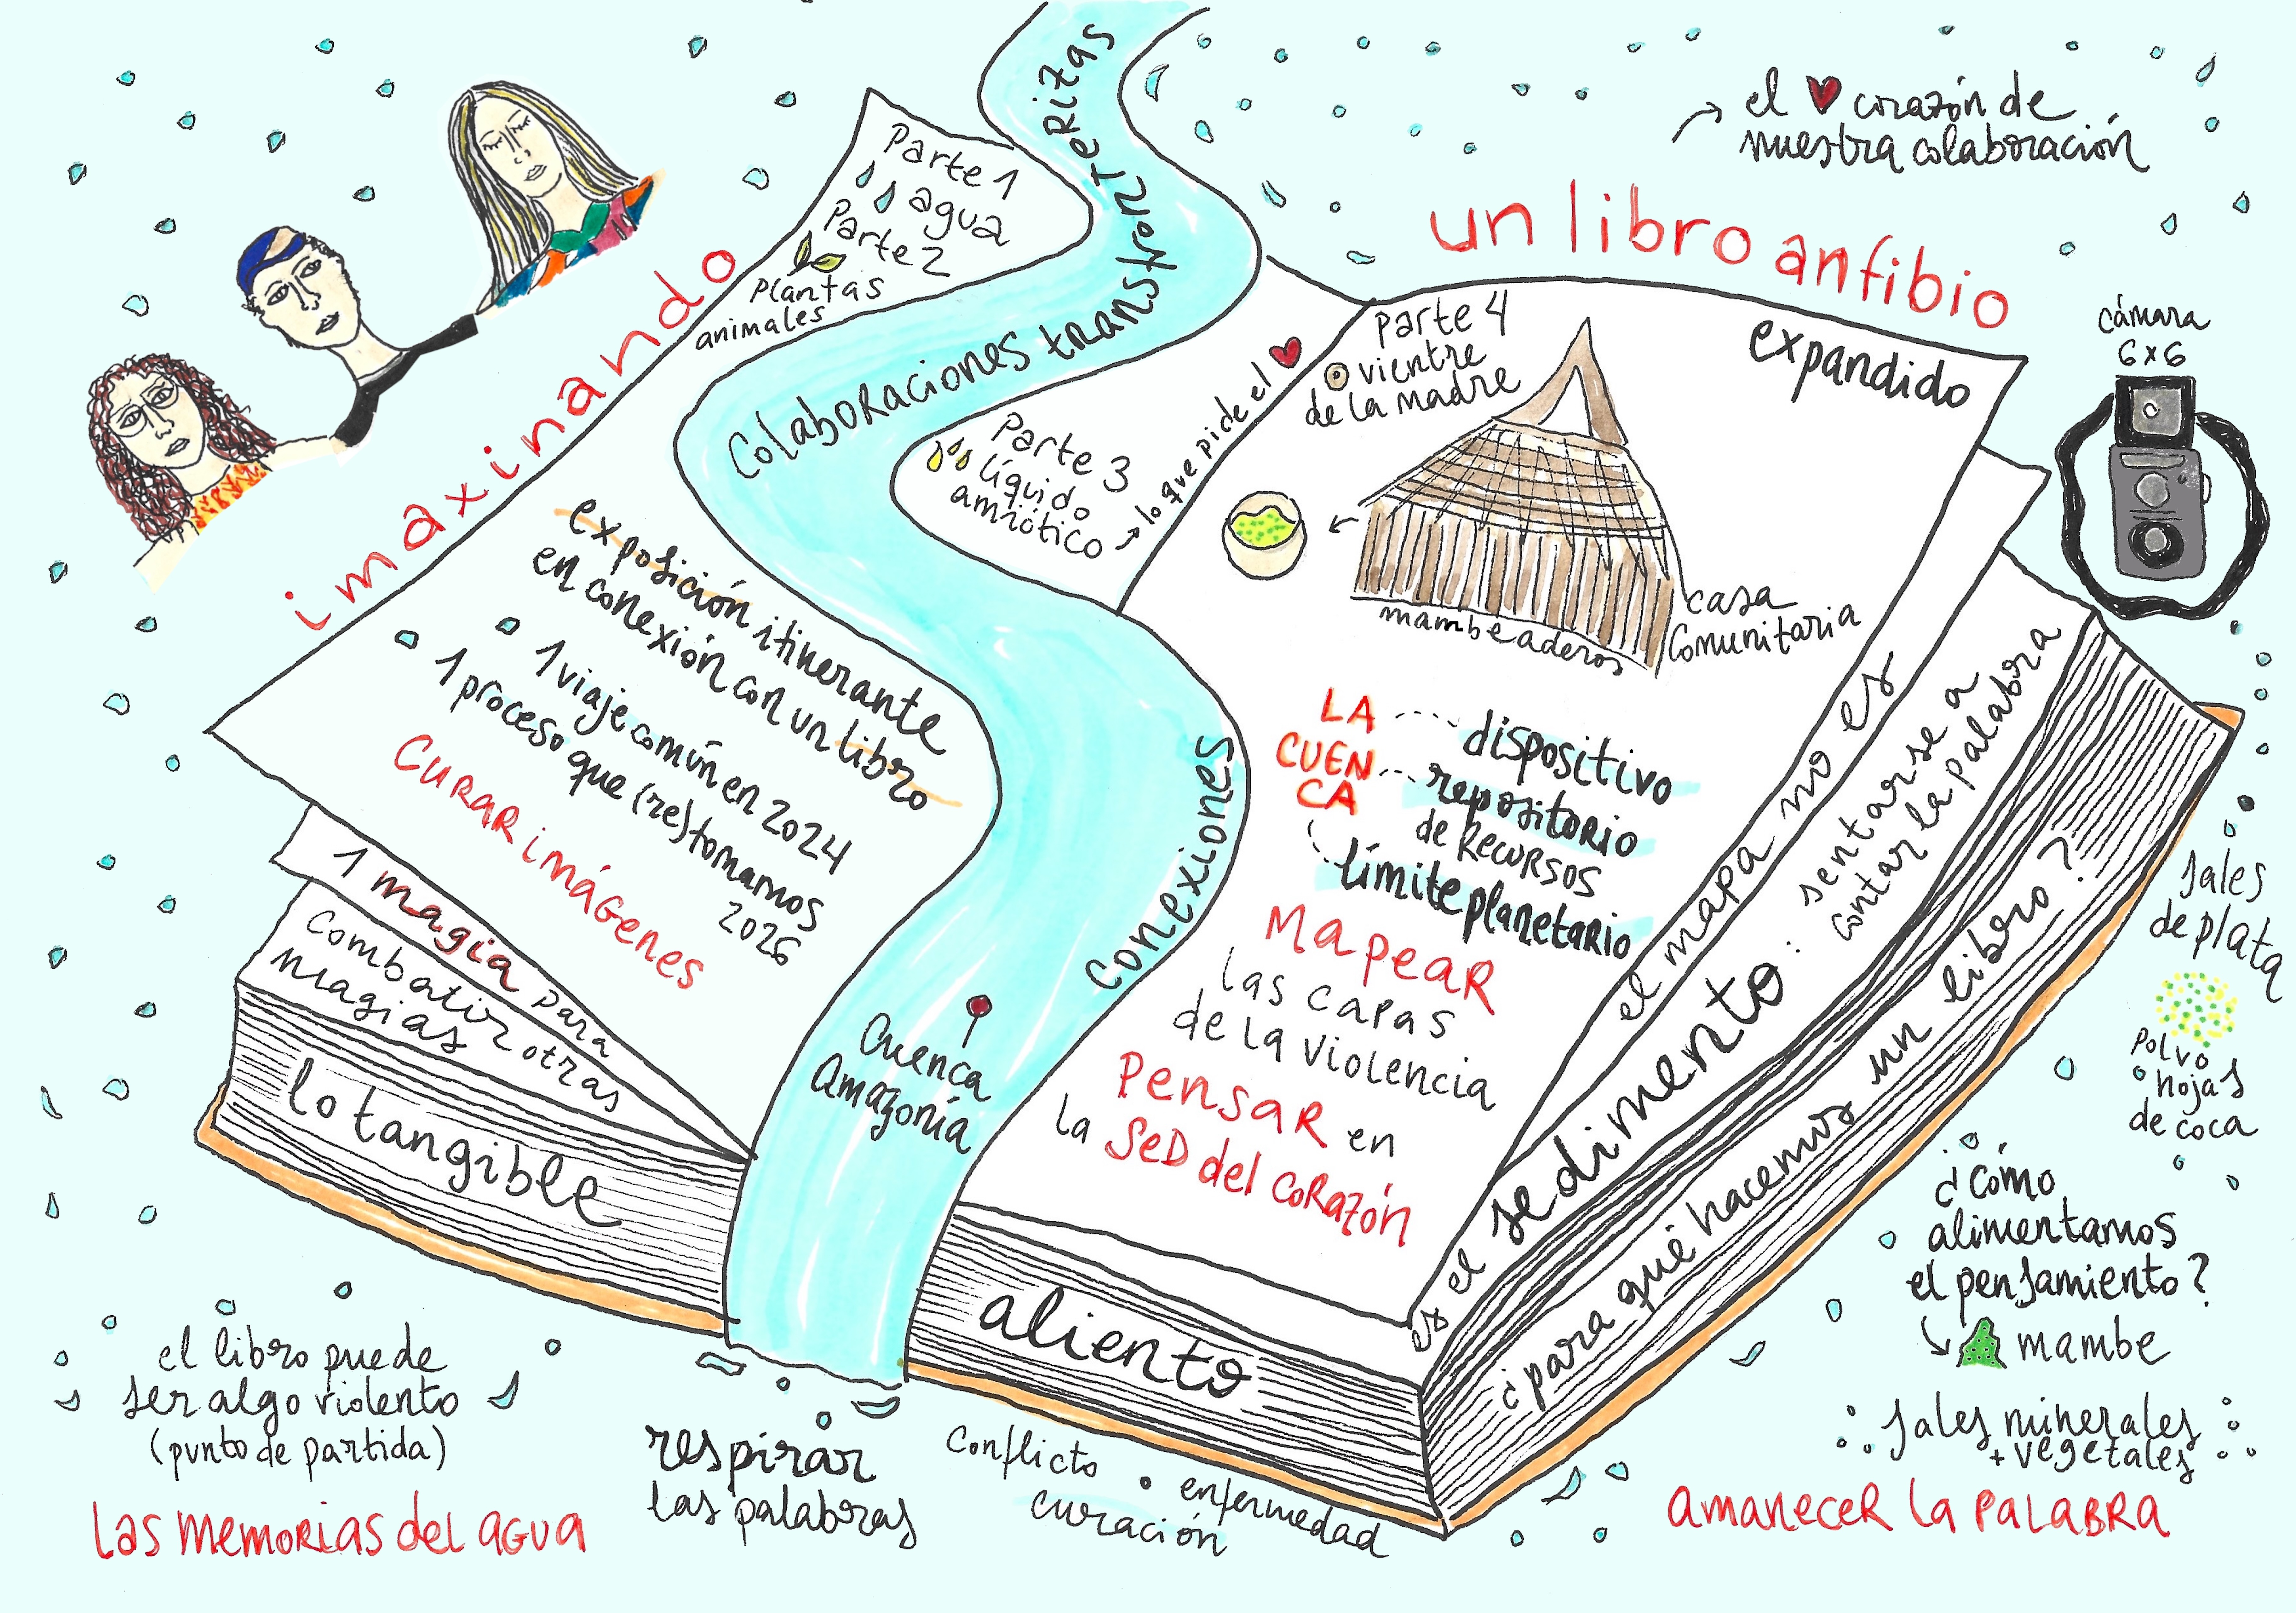 el corazón de
nuestra colaboración
un libro anfibio
expandido
imaxinando
Parte 1
agua
Parte 2
plantas
animales
Colaboraciones transfronterizas
Parte 3
líquido
amniótico
lo que pide el
parte 4
vientre
de la madre
mambeaderos
casa
comunitaria
cámara
6x6
exposición itinerante
en conexión con un libro
1 viaje común en 2024
1 proceso que (re)tomamos
2026
CURAR imágenes
1 magia para
combatir otras
magias
lo tangible
conexiones
Cuenca
Amazonía
LA
CUEN
CA
dispositivo
repositorio
de RECURSOS
límite planetario
Mapear
las capas
de la violencia
Pensar en
la SED del CORAZÓN
el mapa no es
es el sedimento:
sentarse a
contar la palabra
¿para qué hacemos un libro?
aliento
sales
de plata
polvo
hojas
de coca
¿cómo
alimentamos
el pensamiento?
mambe
sales minerales
+ vegetales
amanecer la palabra
el libro puede
ser algo violento
(punto de partida)
las memorias del agua
respirar
las palabras
conflicto
enfermedad
curación